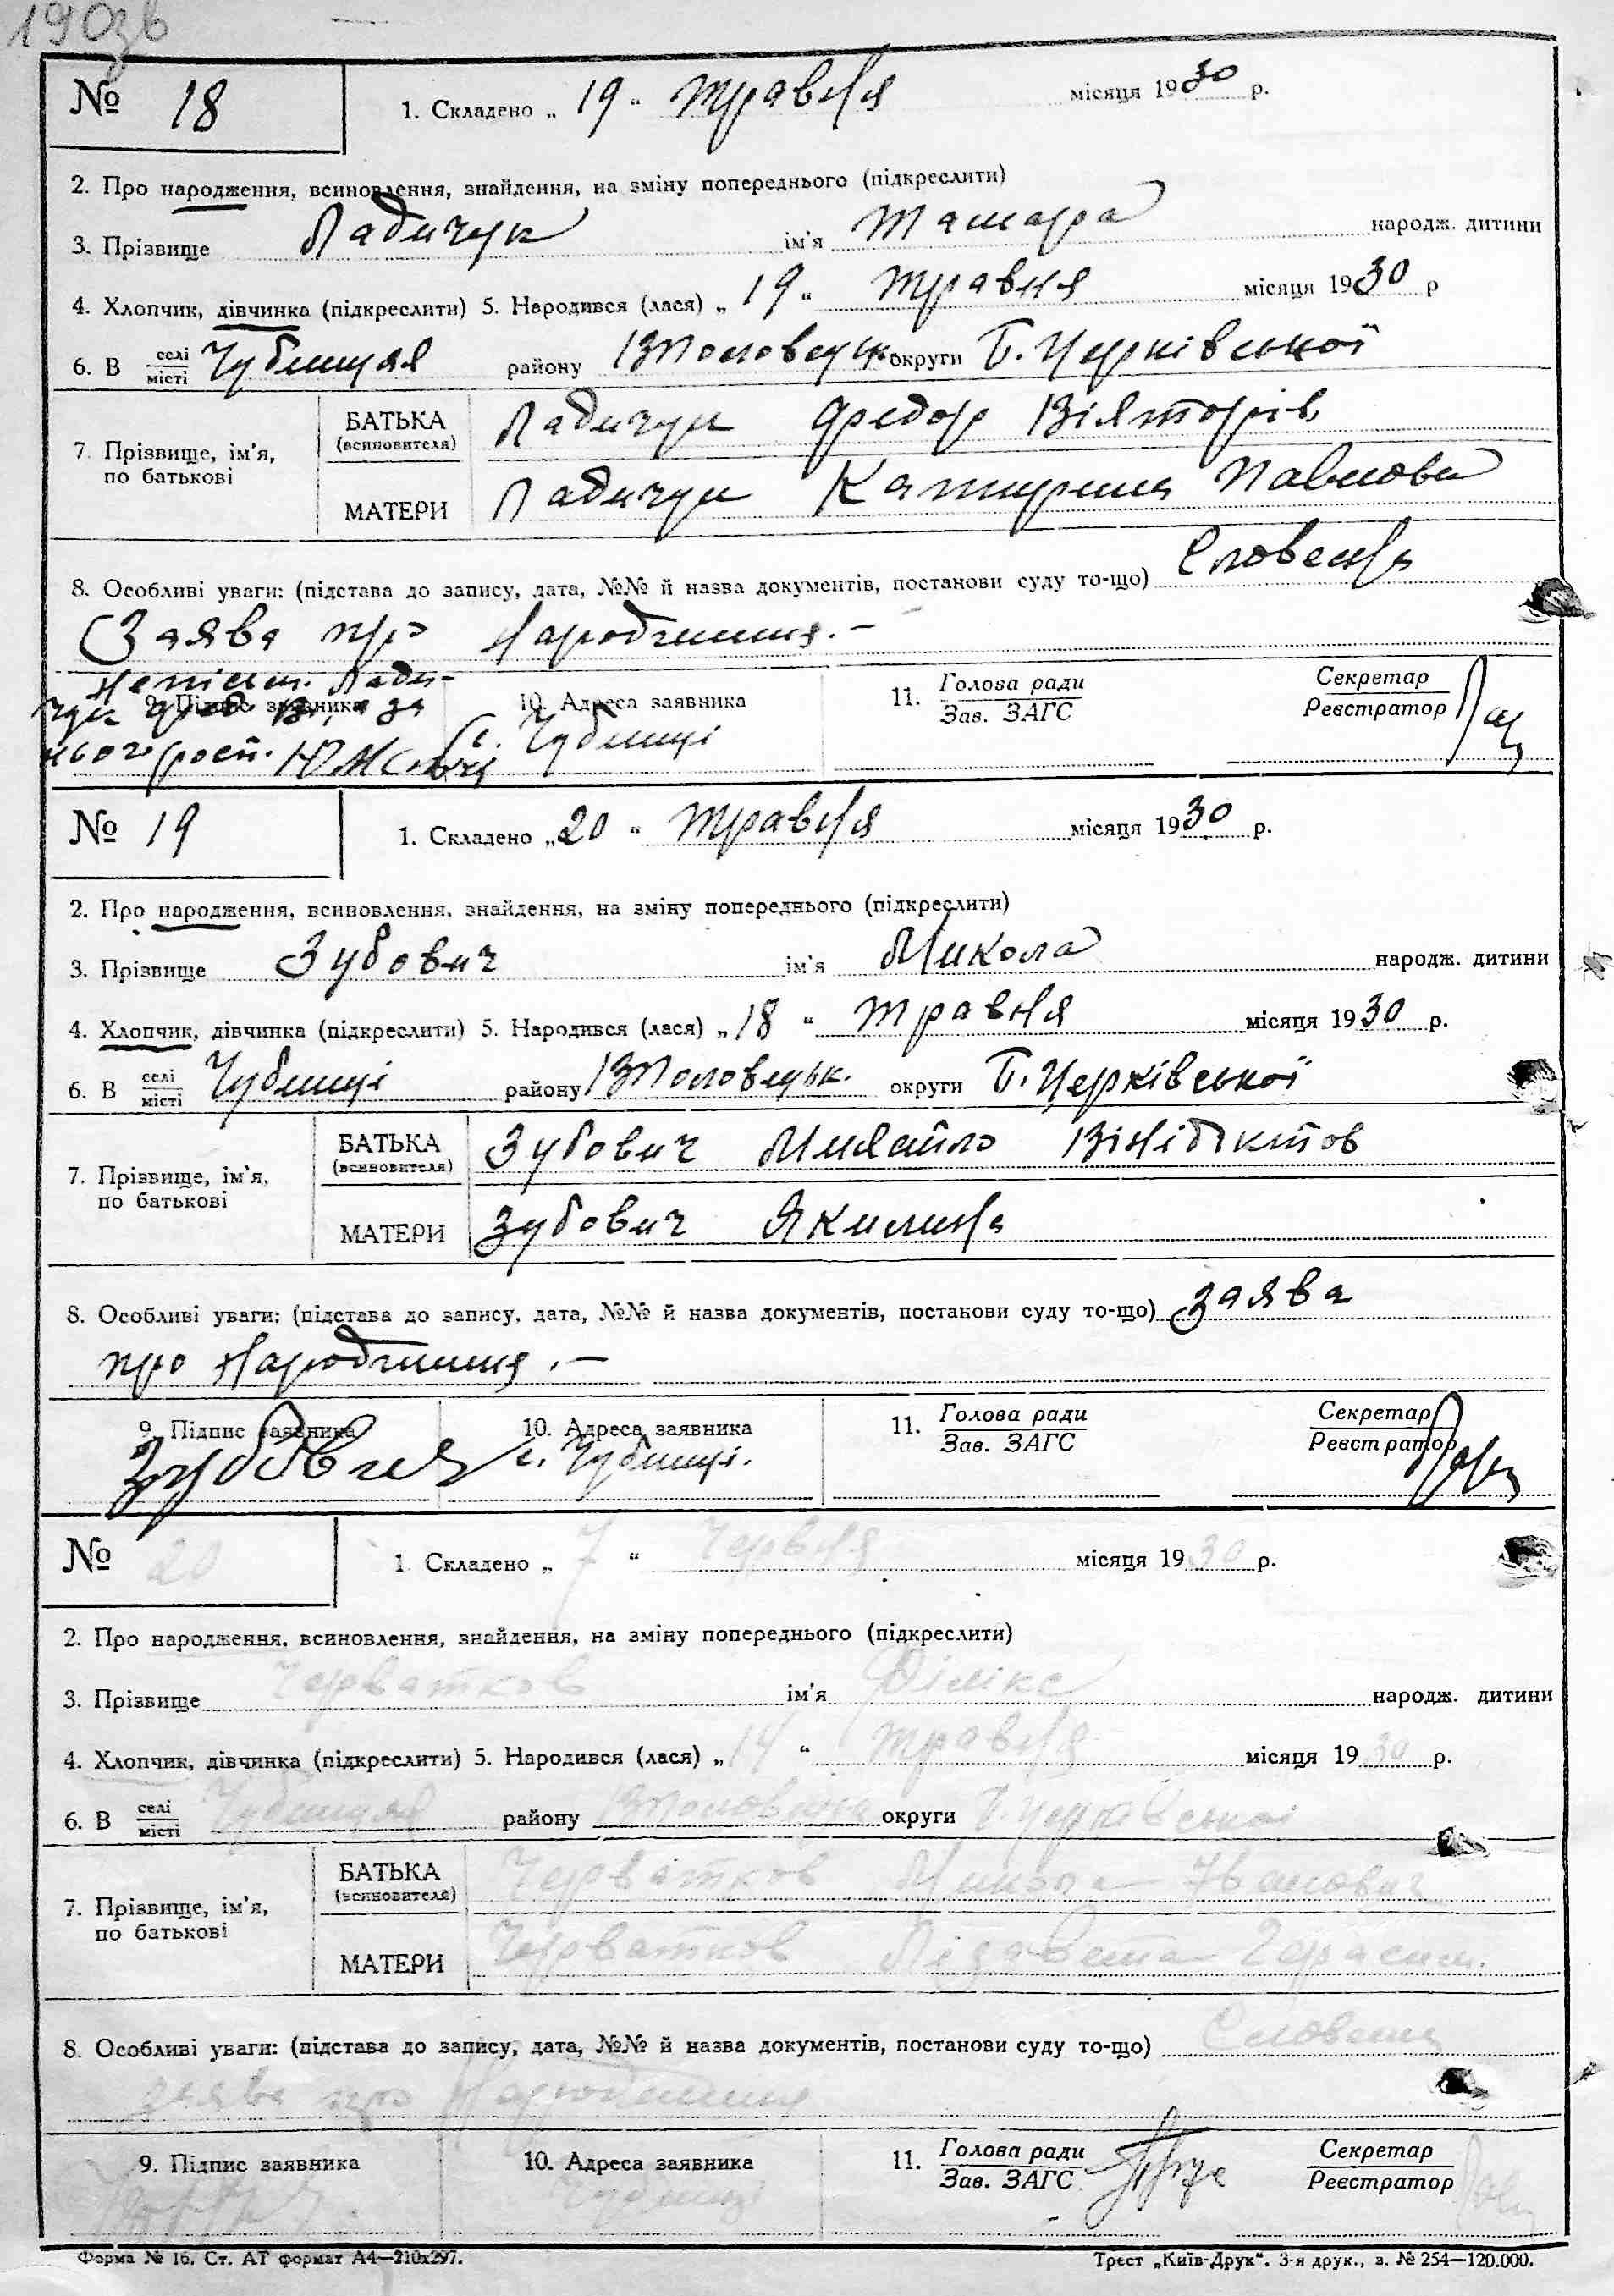 190зв
№ 18
1. Складено „ 19 “ травня місяця 1930 р.
2. Про народження, всиновлення, знайдення, на зміну попереднього (підкреслити)
3. Прізвище Ладичук ім'я Тамара народж. дитини
4. Хлопчик, дівчинка (підкреслити) 5. Народився (лася) „ 19 “ травня місяця 1930 р
6. В селі/місті Чубинцях району Вполовецьк. округи Б. Церківської
7. Прізвище, ім'я, по батькові
БАТЬКА (всиновителя) Ладичук Федор Вікторів
МАТЕРИ Ладичук Катирина Павлова
8. Особливі уваги: (підстава до запису, дата, №№ й назва документів, постанови суду то-що) Словесна
Заява про народження.–
неписьм. Лади-
9. Підпис заявника 10. Адреса заявника 11. Голова ради Зав. ЗАГС Секретар Реєстратор
чук за
нього росп. с. Чубинці
№ 19
1. Складено „ 20 “ травня місяця 1930 р.
2. Про народження, всиновлення, знайдення, на зміну попереднього (підкреслити)
3. Прізвище Зубович ім'я Микола народж. дитини
4. Хлопчик, дівчинка (підкреслити) 5. Народився (лася) „ 18 “ травня місяця 1930 р.
6. В селі/місті Чубинці району Вполовецьк. округи Б. Церківської
7. Прізвище, ім'я, по батькові
БАТЬКА (всиновителя) Зубович Михайло Вінідіктов
МАТЕРИ Зубович Якилина
8. Особливі уваги: (підстава до запису, дата, №№ й назва документів, постанови суду то-що) Заява
про народження.–
9. Підпис заявника 10. Адреса заявника 11. Голова ради Зав. ЗАГС Секретар Реєстратор
Зубович с. Чубинці.
№ 20
1. Складено „ 7 “ червня місяця 1930 р.
2. Про народження, всиновлення, знайдення, на зміну попереднього (підкреслити)
3. Прізвище Черватков ім'я Філікс народж. дитини
4. Хлопчик, дівчинка (підкреслити) 5. Народився (лася) „ 14 “ травня місяця 1930 р.
6. В селі/місті Чубинцях району Вполовецьк округи Б Церківської
7. Прізвище, ім'я, по батькові
БАТЬКА (всиновителя) Черватков Микола Іванович
МАТЕРИ Черватков Лізавета Герасим.
8. Особливі уваги: (підстава до запису, дата, №№ й назва документів, постанови суду то-що) Словесна
заява про народження
9. Підпис заявника 10. Адреса заявника 11. Голова ради Зав. ЗАГС Секретар Реєстратор
Чубинці
Форма № 16. Ст. АТ формат А4—210x297. Трест „Київ-Друк“. 3-я друк., з. № 254—120.000.